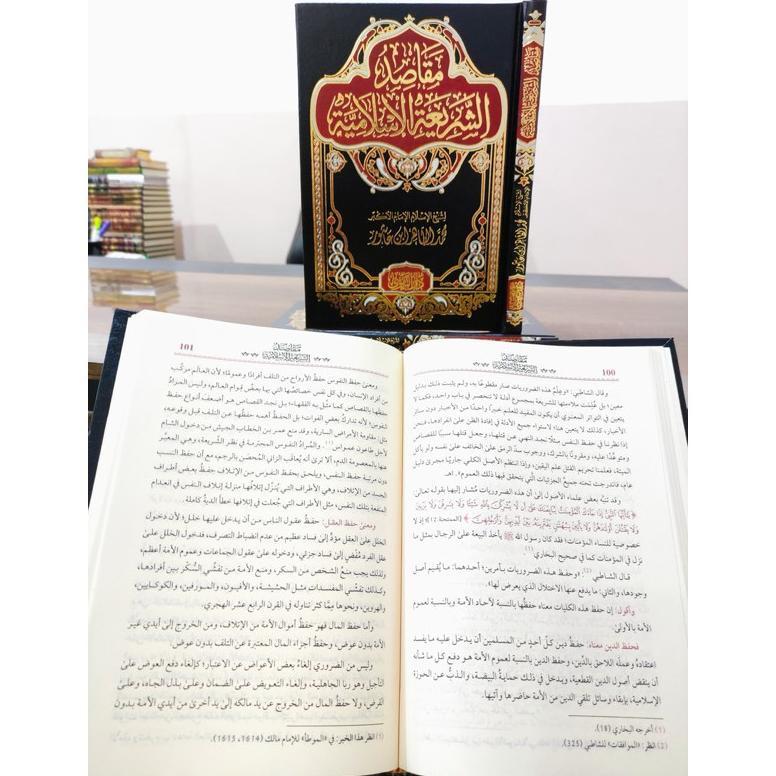 مقاصد
الشريعة الإسلامية
لشيخ الإسلام الإمام الأكبر
محمد الطاهر ابن عاشور
100
مقاصد
الشريعة الإسلامية
وقال الشاطبي: «وعِلْمُ هذه الضروريات صار مقطوعًا به، ولم يثبت ذلك بدليل
معين؛ بل عُلِمَت ملاءمتها للشريعة بمجموع أدلة لا تنحصر في باب واحد، فكما لا
يتعين في التواتر المعنوي أن يكون المفيد للعلم خبرًا واحدًا من الأخبار دون سائر
الأخبار، كذلك لا يتعين هنا؛ لاستواء جميع الأدلة في إفادة الظن على انفرادها، فنحن
إذا نظرنا في حفظ النفس مثلًا نجد النهي عن قتلها، وجعل قتلها سببًا للقصاص
ومتوعَّدًا عليه، ومقرونًا بالشرك، ووجوب سدّ الرمق على الخائف على نفسه ولو بأكل
الميتة، فعلمنا تحريم القتل علم اليقين، وإذا انتظم الأصل الكلي جاريًا مجرى دليل
عام، فاندرجت تحته جميع الجزئيات التي يتحقق فيها ذلك العموم». اهـ.
وقد تنبَّه بعض علماء الأصول إلى أن هذه الضروريات مُشار إليها بقوله تعالى:
﴿يَا أَيُّهَا النَّبِيُّ إِذَا جَاءَكَ الْمُؤْمِنَاتُ يُبَايِعْنَكَ عَلَى أَنْ لَا يُشْرِكْنَ بِاللَّهِ شَيْئًا وَلَا يَسْرِقْنَ وَلَا يَزْنِينَ
وَلَا يَقْتُلْنَ أَوْلَادَهُنَّ وَلَا يَأْتِينَ بِبُهْتَانٍ يَفْتَرِينَهُ بَيْنَ أَيْدِيهِنَّ وَأَرْجُلِهِنَّ﴾ [الممتحنة: 12]؛ إذ لا
خصوصية للنساء المؤمنات؛ فقد كان رسول الله ﷺ يأخذ البيعة على الرجال بمثل ما
نزل في المؤمنات كما في صحيح البخاري (1).
قال الشاطبي (2): «وحفظ هذه الضروريات بأمرين؛ أحدهما: ما يُقيم أصل
وجودها، والثاني: ما يدفع عنها الاختلال الذي يعرض لها».
وأقول: إن حفظ هذه الكليات معناه حفظُها بالنسبة لآحاد الأمة وبالنسبة لعموم
الأمة بالأولى.
فحفظ الدين معناه: حفظ دين كل أحد من المسلمين أن يدخل عليه ما يفسد
اعتقادَهُ وعملَه اللاحق بالدين، وحفظ الدين بالنسبة لعموم الأمة هو دفع كل ما شأنه
أن ينقض أصول الدين القطعية، ويدخل في ذلك حماية البيضة، والذبّ عن الحوزة
الإسلامية، بإبقاء وسائل تلقي الدين من الأمة حاضرها وآتيها.
(1) أخرجه البخاري (18).
(2) انظر: «الموافقات» للشاطبي (325).
101
مقاصد
الشريعة الإسلامية
ومعنى حفظ النفوس حفظُ الأرواح من التلف أفرادًا وعمومًا؛ لأن العالم مركّب
من أفراد الإنسان، وفي كل نفس خصائصُها التي بها بعضُ قِوام العالم، وليس المراد
حفظُها بالقصاص كما مثّل به الفقهاء؛ بل نجد القصاص هو أضعف أنواع حفظ
النفوس؛ لأنه تدارك بعض الفوات؛ بل الحفظ أهمه حفظُها عن التلف قبل وقوعه،
مثل: مقاومة الأمراض السارية، وقد منع عمر بن الخطاب الجيش من دخول الشام
لأجل طاعون عمواس(1)، والمراد النفوس المحترمة في نظر الشريعة، وهي المعبر
عنها بالمعصومة الدم، ألا ترى أنه يُعاقَب الزاني المُحصَن بالرجم، مع أن حفظ النسب
دون مرتبة حفظ النفس، ويلحق بحفظ النفوس من الإتلاف حفظُ بعض أطراف
الجسد من الإتلاف، وهي الأطراف التي يُنزَّل إتلافها منزلة إتلاف النفس في انعدام
المنفعة بتلك النفس، مثل الأطراف التي جُعلت في إتلافها خطأً الديةُ كاملة.
ومعنى حفظ العقل: حفظ عقول الناس من أن يدخل عليها خلل؛ لأن دخول
الخلل على العقل مؤدٍّ إلى فساد عظيم من عدم انضباط التصرف، فدخول الخلل على
عقل الفرد مُفْضٍ إلى فساد جزئي، ودخوله على عقول الجماعات وعموم الأمة أعظم؛
ولذلك يجب منعُ الشخص من السكر، ومنع الأمة من تفشّي السُّكر بين أفرادها،
وكذلك تفشّي المفسدات مثل الحشيشة، والأفيون، والمورفين، والكوكايين،
والهروين، ونحوها مِمَّا كثر تناوله في القرن الرابع عشر الهجري.
وأما حفظ المال فهو حفظُ أموال الأمة من الإتلاف، ومن الخروج إلى أيدي غير
الأمة بدون عوض، وحفظُ أجزاء المال المعتبرة عن التلف بدون عوض.
وليس من الضروري إلغاءُ بعض الأعواض عن الاعتبار؛ كإلغاء دفع العوض على
التأجيل وهو ربا الجاهلية، وإلغاء التعويض على الضمان وعلى بذل الجاه، وعلى
القرض، ولا حفظُ المال من الخروج عن يد مالكه إلى يد أخرى من أيدي الأمة بدون
(1) انظر هذا الخبر: في «الموطأ» للإمام مالك (1614، 1615).